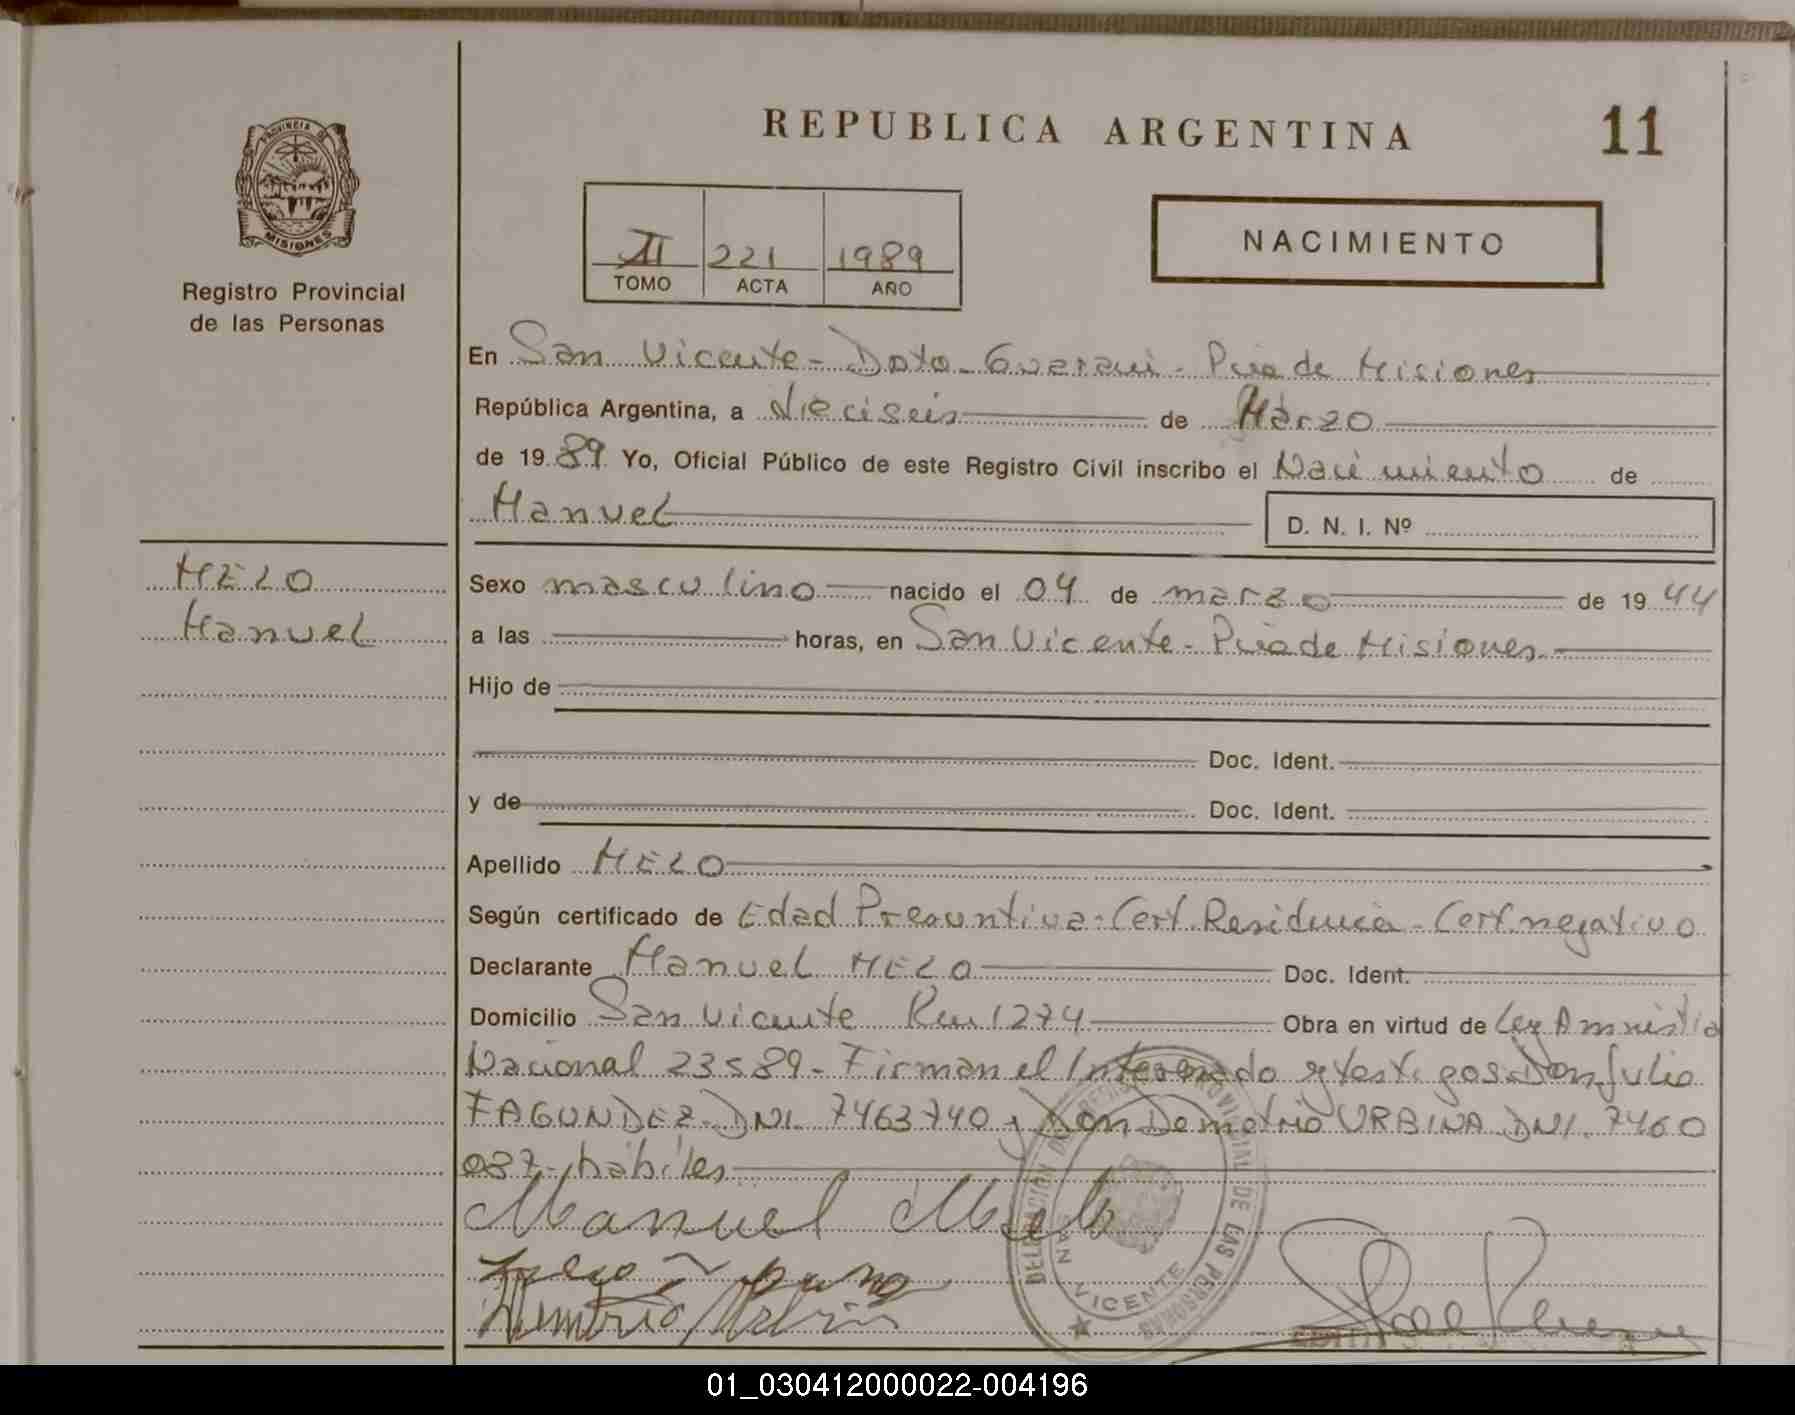 REPUBLICA ARGENTINA
11
PROVINCIA DE
MISIONES
Registro Provincial
de las Personas
II 221 1989
TOMO ACTA AÑO
NACIMIENTO
En San Vicente - Dpto. Guarani - Pcia de Misiones
República Argentina, a dieciseis de Marzo
de 19 89 Yo, Oficial Público de este Registro Civil inscribo el Nacimiento de
Manuel
D. N. I. Nº
MELO
Manuel
Sexo masculino nacido el 04 de marzo de 19 44
a las horas, en San Vicente - Pcia de Misiones
Hijo de
Doc. Ident.
y de Doc. Ident.
Apellido MELO
Según certificado de Edad Presuntiva - Cert. Residencia - Cert. negativo
Declarante Manuel MELO Doc. Ident.
Domicilio San Vicente Km 1274 Obra en virtud de Ley Amnistia
Nacional 23589 - Firman el Interesado y testigos Don Julio
FAGUNDEZ - DNI. 7463740 y Don Demetrio URBINA DNI. 7460
037 - hábiles
Manuel Melo
DELEGACION DE REGISTRO PROVINCIAL DE LAS PERSONAS
SAN VICENTE
01_030412000022-004196